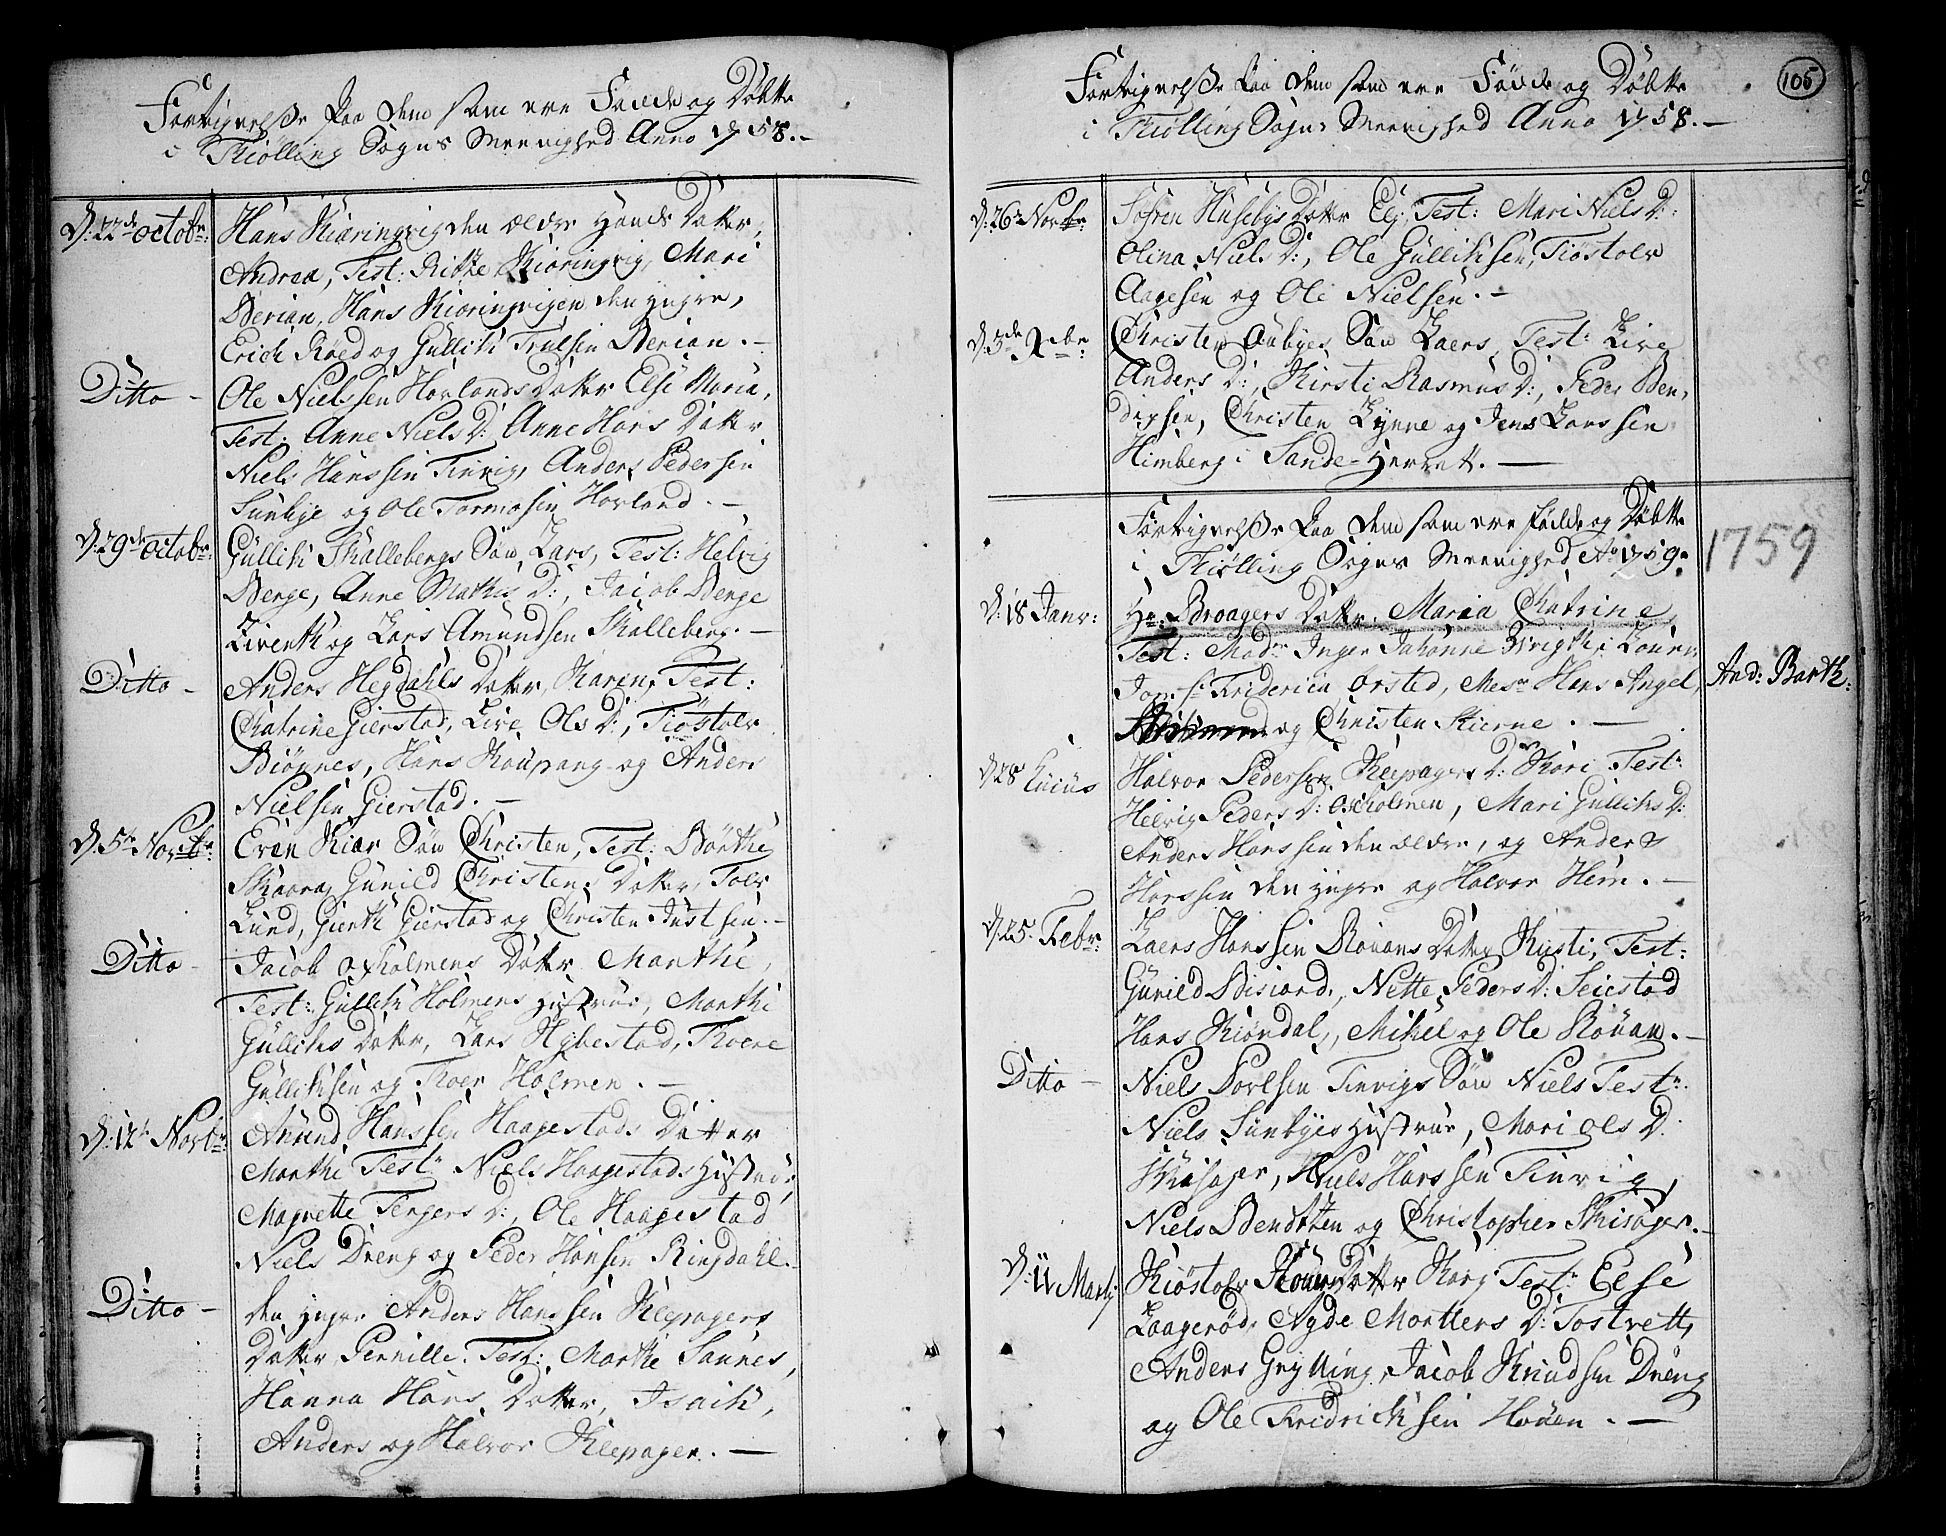 Fortegnelsse Paa dem som ere Födde og Döbte
i Tiölling Sogns Meenighed Anno 1758.
D: 22de Octobr: Hans Kiæringvig den ældre hands Datter,
Andrea, Test: Kiæringvig, Mari
Berian, Hans Kiæringvigen den yngre,
Erich Röed og Gullich Trulsen Berian.
Ditto Ole Nielssen Hovlands Datter Else Maria,
Test: Anne Niels D: Anne Hans Datter
Niels Hanssen Tinvig, Anders Pedersen
Sunbye og Ole Tormosen Hovland.
D: 29de Octobr: Gullich Skallebergs Sön Lars, Test: Helvig
Berge, Anne Mathis D:, Jacob Berge
Livert og Lars Amundsen Skalleberg.
Ditto Anders Hegdahls Datter, Karen, Test:
Chatrine Gierstad, Live Ols D:, Tiöstolv
Biögnes, Hans Koupang og Anders
Nielsen Gierstad.
D: 5te Novbr: Even Kiær Sön Christen, Test: Börthe
Skaara, Gunild Christens Datter, Tolv
Lund, Giert Gierstad og Christen Justsen.
Ditto Jacob Oxholmens Datter Marthe,
Test: Gullich Holmens Hustrue, Marthe
Gullichs Datter, Lars Hybestad, Thore
Gullichsen og Thoer Holmen.
D: 12te Novbr: Amund Hanssen Haagestads Datter
Marthe Test: Niels Haagestads Hustrue
Magrette Tergers D:, Ole Haagestad
Niels Dreng og Peder Hansen Ringdahl.
Ditto den yngre Anders Hanssen Klepagers
Datter Pernille. Test: Marthe Sannes,
Hanna Hans Datter, Isach,
Anders og Halvor Klepager.
105
Fortegnelsse Paa dem som ere Födde og Döbte
i Tiölling Sogns Meenighed Anno 1758.
D: 26de Novbr: Sofren Husebys Datter Test: Mari Niels D:
Olina Niels D:, Ole Gullichsen, Tiöstolv
Aagesen og Ole Nielsen.
D: 3de Xbr: Christen Aubyes Sön Laers, Test: Live
Anders D:, Kirsti Rasmus D:, Peder Ben-
dixsen, Christen Lynne og Jens Larssen
Himberg i Sande-Herret.
Fortegnelsse Paa dem som ere Födde og Döbte
i Tiölling Sogns Meenighed Ao 1759.
1759
D: 18 Janr: Hr: Broagers Datter: Maria Chatrine
Test: Madme Inger Johanne
Fridericia Örsted, Mesr Hans Angel, And: Barth:
og Christen Skierne.
D: 28 Halvor Pedersen Klepagers D: Kari Test:
Helvig Peders D: Oxholmen, Mari Gullichs D:
Anders Hanssen den ældre, og Anders
Hanssen den yngre og Halvor Hem.
D: 25 Febr: Laers Hanssen Rouans Datter Kirsti, Test:
Gunild Bisiord, Nette Peders D: Seiestad
Hans Kiöndal, Mikel og Ole Rouan.
Ditto Niels Povlsen Tinvigs Sön Niels Test:
Niels Sunbyes Hustrue, Mari Ols D:
Skisager, Niels Hanssen Tinvig,
Niels Bendtzen og Christopher Skisager.
D: 11 Martj Kiöstolv Datter Test: Else
Laageröd, Aagde Mortters D: Tostvett,
Anders Grytting, Jacob Knudsen Dreng
og Ole Fridrichsen Houen.